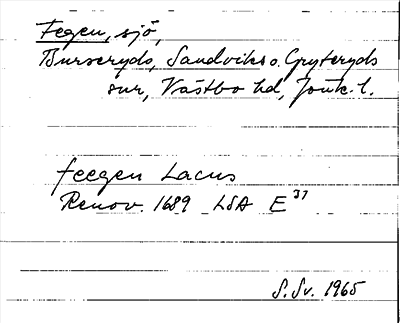 Fegen, sjö,
Burseryds, Sandviks o. Gryteryds
snr, Västbo hd, Jönk. l.
feegen Lacus
Renov. 1689 LSA E³⁷
S. Sv. 1965